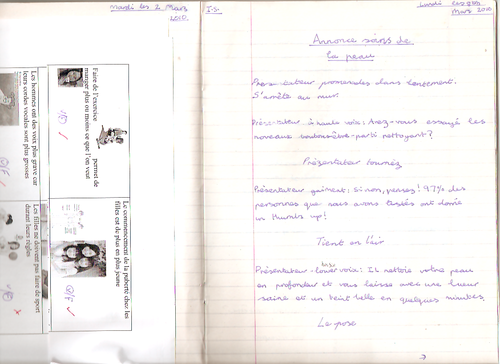 Mardi le 2 Mars
2010.
Faire de l'exercice permet de
manger plus ou moins ce que l'on veut
V/F
Les hommes ont des voix plus grave car
leurs cordes vocales sont plus grosses
V/F
Le commencement de la puberté chez les
filles est de plus en plus jeune
V/F
Les filles ne doivent pas faire de sport
durant leurs règles
I.S.
Lundi
Mars 2010
Annonce soins de
la peau
promenades dans lentement.
S'arrête au mur.
Présentateur à haute voix: Avez-vous essayé les
nouveaux nettoyant?
Présentateur tournez
Présentateur gaiment: Si non, pensez! 97% des
personnes que nous avons testés ont donné
un thumbs up!
Tient en l'air
Présentateur - lower voix: Il nettoie votre peau
en profondeur et vous laisse avec une lueur
saine et un teint belle en quelques minutes.
La pose